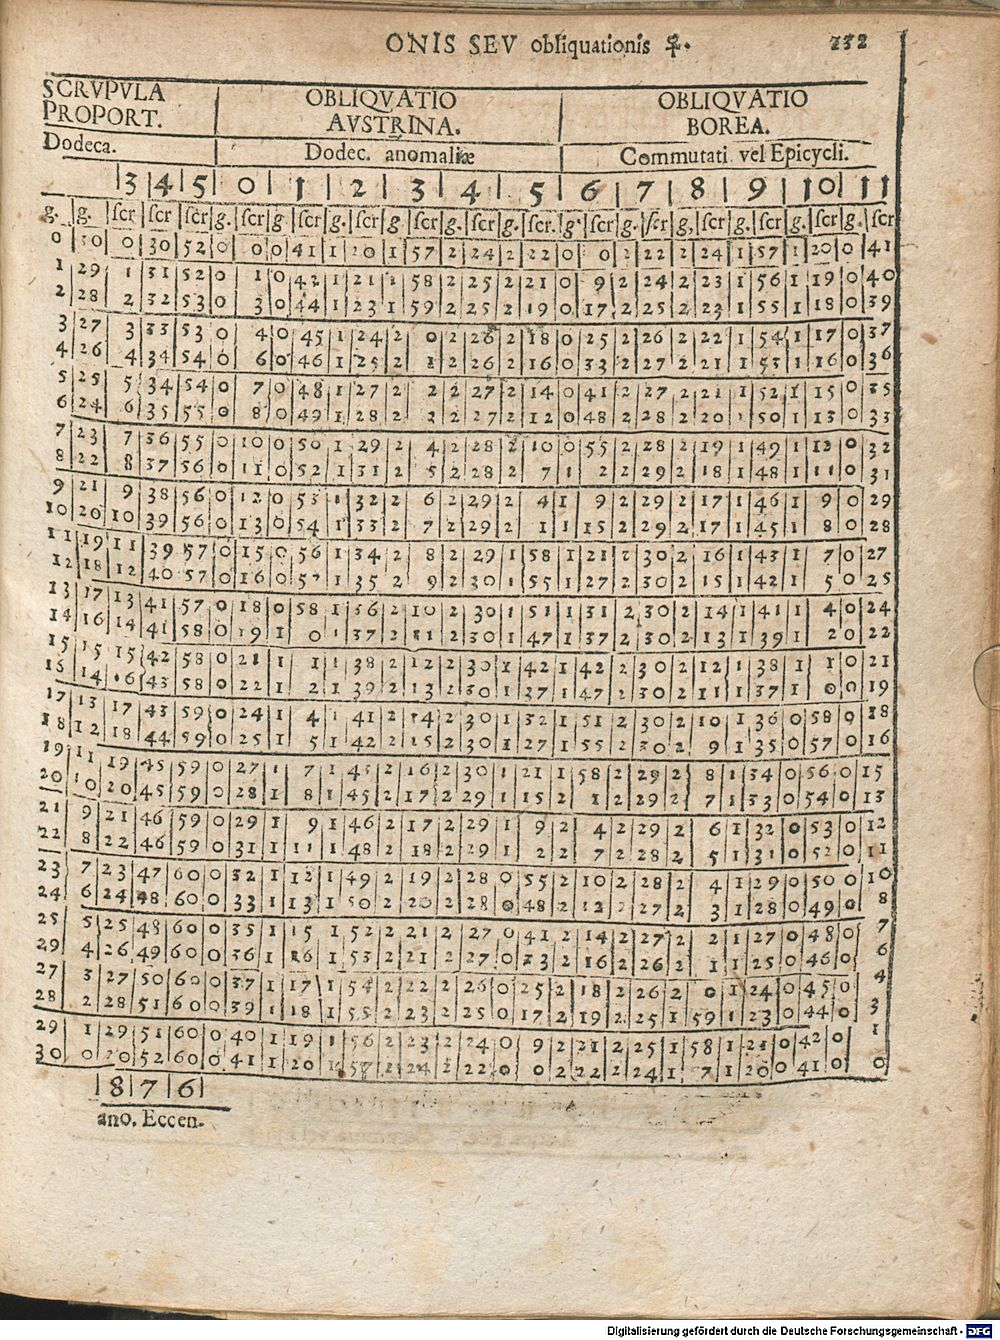 ONIS SEV obliquationis ♀. 132
SCRVPVLA PROPORT. | OBLIQVATIO AVSTRINA. | OBLIQVATIO BOREA.
Dodeca. | Dodec. anomaliæ | Commutati vel Epicycli.
3 4 5 0 1 2 3 4 5 6 7 8 9 10 11
g. g. scr scr scr g. scr g. scr g. scr g scr g. scr g. scr. g. scr g. scr g, scr g. scr g. scr g. scr
0 30 0 30 52 0 0 0 41 1 20 1 57 2 24 2 22 0 0 2 22 2 24 1 57 1 20 0 41
1 29 1 31 52 0 1 0 42 1 21 1 58 2 25 2 21 0 9 2 24 2 23 1 56 1 19 0 40
2 28 2 32 53 0 3 0 44 1 23 1 59 2 25 2 19 0 17 2 25 2 23 1 55 1 18 0 39
3 27 3 33 53 0 4 0 45 1 24 2 0 2 26 2 18 0 25 2 26 2 22 1 54 1 17 0 37
4 26 4 34 54 0 6 0 46 1 25 2 1 2 26 2 16 0 33 2 27 2 21 1 53 1 16 0 36
5 25 5 34 54 0 7 0 48 1 27 2 2 2 27 2 14 0 41 2 27 2 21 1 52 1 15 0 35
6 24 6 35 55 0 8 0 49 1 28 2 3 2 27 2 12 0 48 2 28 2 20 1 50 1 13 0 33
7 23 7 36 55 0 10 0 50 1 29 2 4 2 28 2 10 0 55 2 28 2 19 1 49 1 12 0 32
8 22 8 37 56 0 11 0 52 1 31 2 5 2 28 2 7 1 2 2 29 2 18 1 48 1 11 0 31
9 21 9 38 56 0 12 0 53 1 32 2 6 2 29 2 4 1 9 2 29 2 17 1 46 1 9 0 29
10 20 10 39 56 0 13 0 54 1 33 2 7 2 29 2 1 1 15 2 29 2 17 1 45 1 8 0 28
11 19 11 39 57 0 15 0 56 1 34 2 8 2 29 1 58 1 21 2 30 2 16 1 43 1 7 0 27
12 18 12 40 57 0 16 0 57 1 35 2 9 2 30 1 55 1 27 2 30 2 15 1 42 1 5 0 25
13 17 13 41 57 0 18 0 58 1 36 2 10 2 30 1 51 1 31 2 30 2 14 1 41 1 4 0 24
14 16 14 41 58 0 19 1 0 1 37 2 11 2 30 1 47 1 37 2 30 2 13 1 39 1 2 0 22
15 15 15 42 58 0 21 1 1 1 38 2 12 2 30 1 42 1 42 2 30 2 12 1 38 1 1 0 21
16 14 16 43 58 0 22 1 2 1 39 2 13 2 30 1 37 1 47 2 30 2 11 1 37 1 0 0 19
17 13 17 43 59 0 24 1 4 1 41 2 14 2 30 1 32 1 51 2 30 2 10 1 36 0 58 0 18
18 12 18 44 59 0 25 1 5 1 42 2 15 2 30 1 27 1 55 2 30 2 9 1 35 0 57 0 16
19 11 19 45 59 0 27 1 7 1 45 2 16 2 30 1 21 1 58 2 29 2 8 1 34 0 56 0 15
20 10 20 45 59 0 28 1 8 1 45 2 17 2 29 1 15 2 1 2 29 2 7 1 33 0 54 0 13
21 9 21 46 59 0 29 1 9 1 46 2 17 2 29 1 9 2 4 2 29 2 6 1 32 0 53 0 12
22 8 22 46 59 0 31 1 11 1 48 2 18 2 29 1 2 2 7 2 28 2 5 1 31 0 52 0 11
23 7 23 47 60 0 32 1 12 1 49 2 19 2 28 0 55 2 10 2 28 2 4 1 29 0 50 0 10
24 6 24 48 60 0 33 1 13 1 50 2 20 2 28 0 48 2 12 2 27 2 3 1 28 0 49 0 8
25 5 25 48 60 0 35 1 15 1 52 2 21 2 27 0 41 2 14 2 27 2 2 1 27 0 48 0 7
29 4 26 49 60 0 36 1 16 1 53 2 21 2 27 0 33 2 16 2 26 2 1 1 25 0 46 0 6
27 3 27 50 60 0 37 1 17 1 54 2 22 2 26 0 25 2 18 2 26 2 0 1 24 0 45 0 4
28 2 28 51 60 0 39 1 18 1 55 2 23 2 25 0 17 2 19 2 25 1 59 1 23 0 44 0 3
29 1 29 51 60 0 40 1 19 1 56 2 23 2 24 0 9 2 21 2 25 1 58 1 21 0 42 0 1
30 0 30 52 60 0 41 1 20 1 57 2 24 2 22 0 0 2 22 2 24 1 7 1 20 0 41 0 0
8 7 6
ano. Eccen.
Digitalisierung gefördert durch die Deutsche Forschungsgemeinschaft - DFG